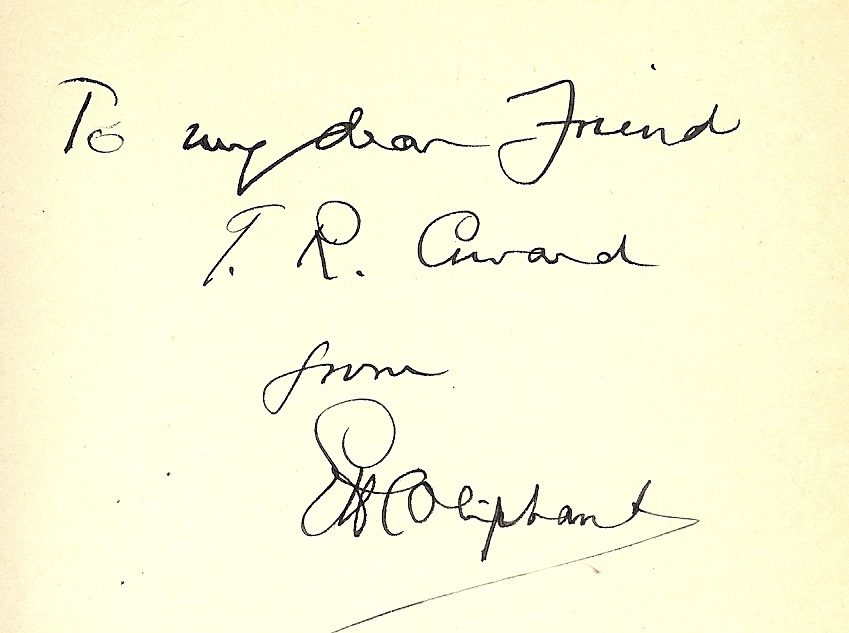 To my dear Friend
T. R. Coward
from
EHC Oliphant